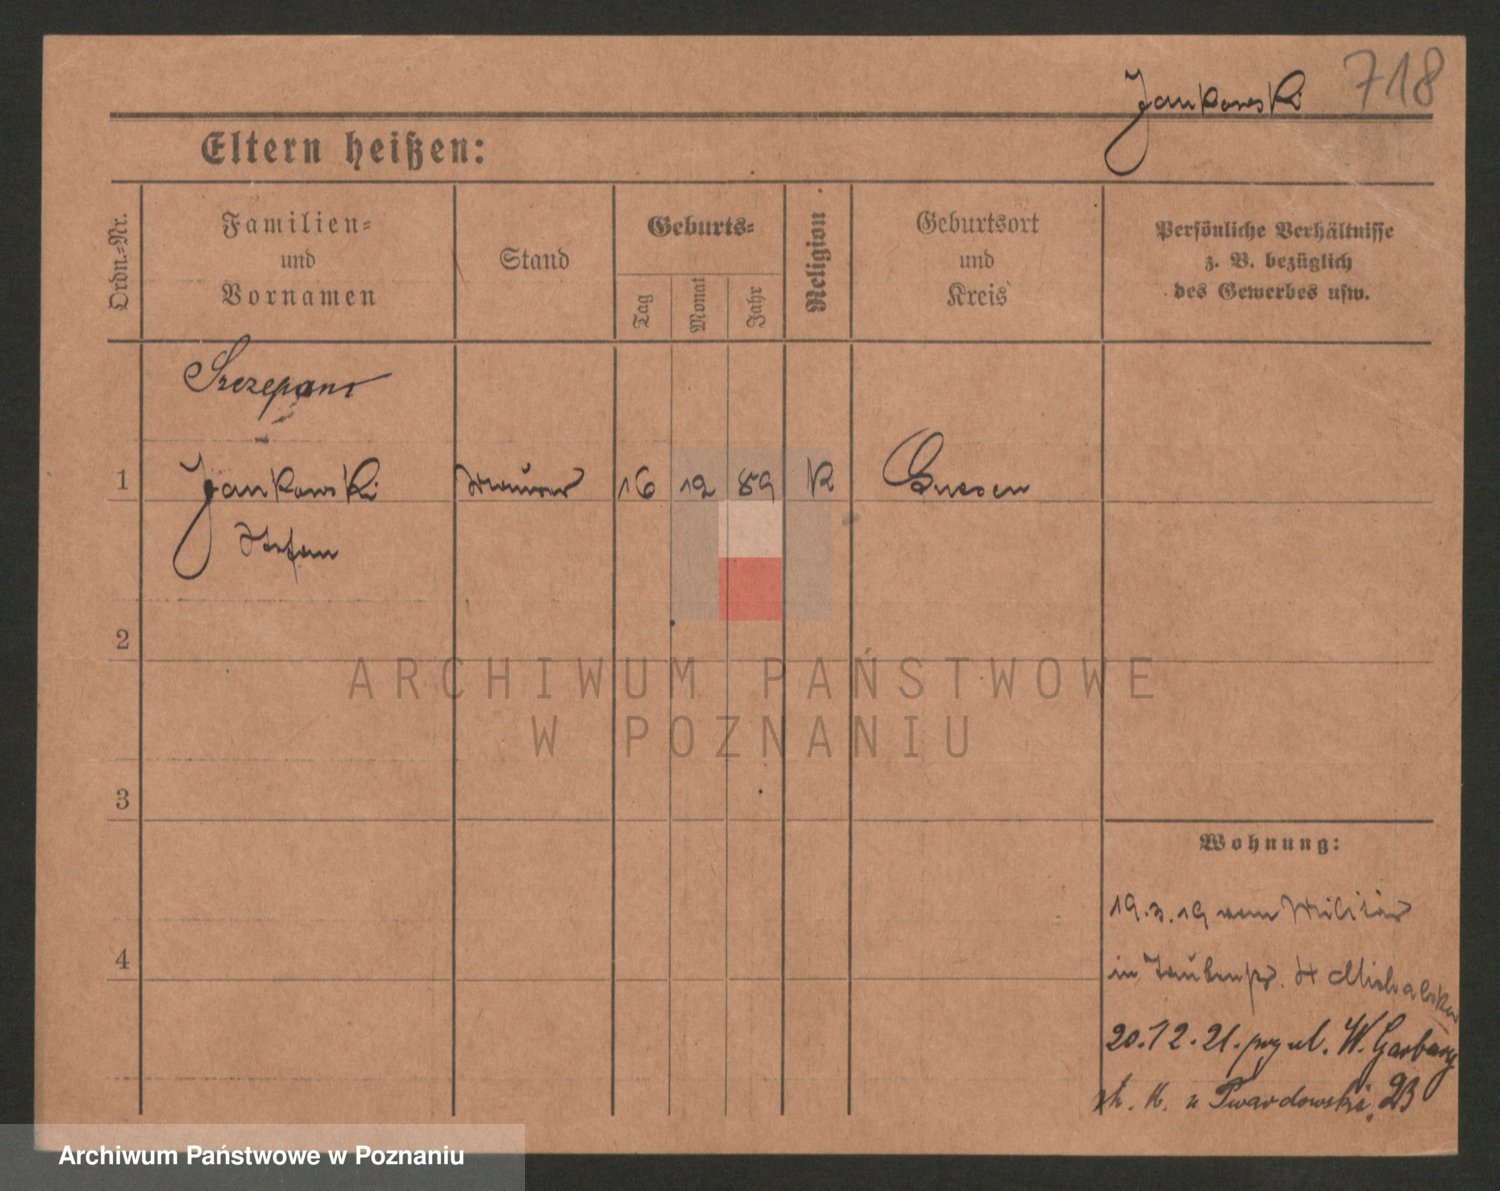 Jankowski 718
Eltern heißen:
Ordn.-Nr.
Familien-
und
Vornamen
Stand
Geburts-
Tag
Monat
Jahr
Religion
Geburtsort
und
Kreis
Persönliche Verhältnisse
z. B. bezüglich
des Gewerbes usw.
1 Jankowski Maurer 16 12 89 K Gnesen
Stefan
2
ARCHIWUM PAŃSTWOWE
W POZNANIU
3
Wohnung:
19.3.19 vom Militär
4
in Taubenstr. 4 Michalska
20.12.21. przy ul. W. Garbary
K. u Twardowski, 23
Archiwum Państwowe w Poznaniu